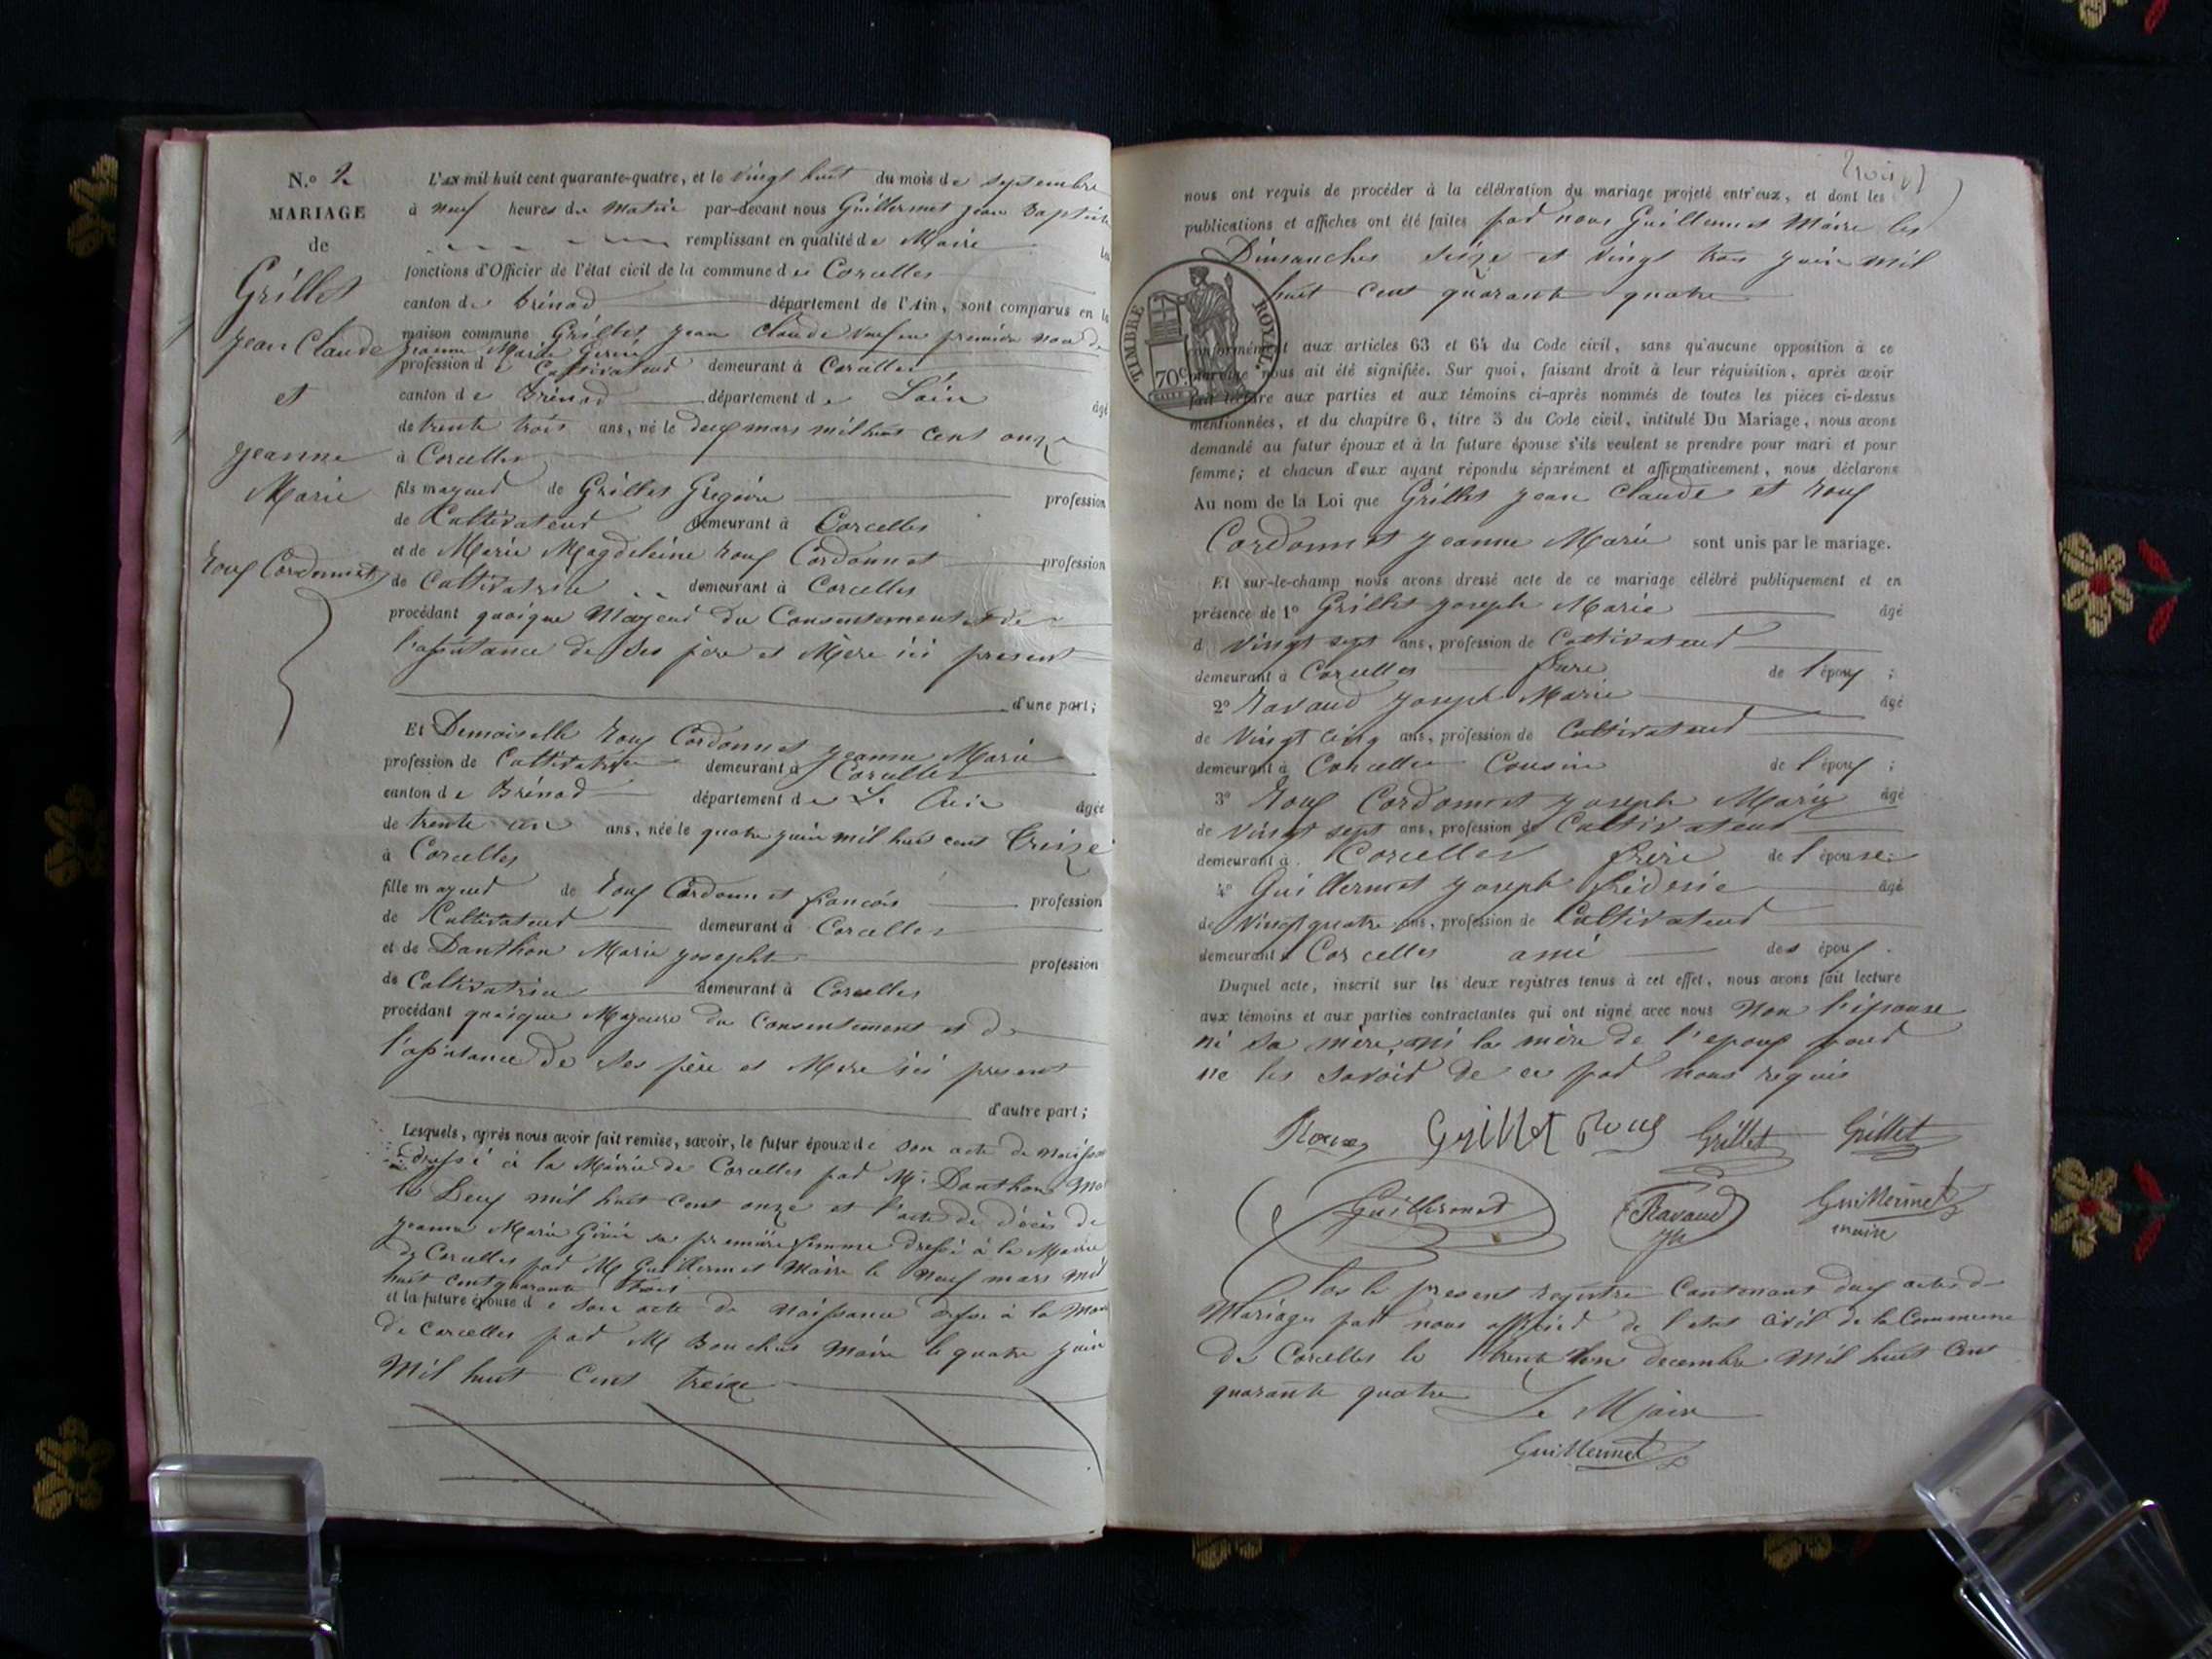 N.o 2
MARIAGE
de
Grillet
Jean Claude
et
Jeanne
Marie
Roux Cordonnet
L'an mil huit cent quarante-quatre, et le vingt huit du mois de septembre
à neuf heures du matin par-devant nous Guillermet Jean Baptiste
remplissant en qualité de Maire les
fonctions d'Officier de l'état civil de la commune de Corcelles
canton de Brénod département de l'Ain, sont comparus en la
maison commune Grillet Jean Claude veuf en première noce de
Jeanne Marie
profession de Cultivateur demeurant à Corcelles
canton de Brénod département de L'ain âgé
de trente trois ans, né le deux mars mil huit cent onze
à Corcelles
fils mayeur de Grillet Gregoire profession
de Cultivateur demeurant à Corcelles
et de Marie Magdeleine Roux Cordonnet profession
de Cultivatrice demeurant à Corcelles
procédant quoique Mayeur du Consentement et de
l'assistance de ses père et Mère ici present
d'une part;
Et Demoiselle Roux Cordonnet Jeanne Marie
profession de Cultivatrice demeurant à Corcelles
canton de Brénod département de L'Ain âgée
de trente un ans, née le quatre juin mil huit cent Treize
à Corcelles
fille mayeur de Roux Cordonnet françois profession
de Cultivateur demeurant à Corcelles
et de Danthon Marie Josephte profession
de Cultivatrice demeurant à Corcelles
procédant quoique Mayeure du Consentement et de
l'assistance de ses père et Mere ici present
d'autre part;
Lesquels, après nous avoir fait remise, savoir, le futur époux de son acte de naissance
dressé à la Mairie de Corcelles par Mr Danthon
le Deux mil huit cent onze et l'acte de décès de
Jeanne Marie sa première femme dressé à la Mairie
de Corcelles par Mr Guillermet Maire le Neuf mars mil
huit cent quarante trois
et la future épouse de son acte de Naissance dressé à la
de Corcelles par Mr Maire le quatre juin
Mil huit Cent treize
nous ont requis de procéder à la célébration du mariage projeté entr'eux, et dont les
publications et affiches ont été faites par nous Guillermet Maire les
Dimanches Seize et Vingt trois juin mil
huit cent quarante quatre
TIMBRE ROYAL.
70c
conformément aux articles 63 et 64 du Code civil, sans qu'aucune opposition à ce
mariage nous ait été signifiée. Sur quoi, faisant droit à leur réquisition, après avoir
fait lecture aux parties et aux témoins ci-après nommés de toutes les pièces ci-dessus
mentionnées, et du chapitre 6, titre 5 du Code civil, intitulé Du Mariage, nous avons
demandé au futur époux et à la future épouse s'ils veulent se prendre pour mari et pour
femme; et chacun d'eux ayant répondu séparément et affirmativement, nous déclarons
Au nom de la Loi que Grillet Jean Claude et Roux
Cordonnet Jeanne Marie sont unis par le mariage.
Et sur-le-champ nous avons dressé acte de ce mariage célébré publiquement et en
présence de 1o Grillet Joseph Marie âgé
d Vingt sept ans, profession de Cultivateur
demeurant à Corcelles frere de l'époux ;
2o Ravaud Joseph Marie âgé
de Vingt cinq ans, profession de Cultivateur
demeurant à Corcelles Cousin de l'époux ;
3o Roux Cordonnet Joseph Marie âgé
de Vingt sept ans, profession de Cultivateur
demeurant à Corcelles frère de l'épouse;
4o Guillermet Joseph fréderic âgé
de Vingt quatre ans, profession de Cultivateur
demeurant à Corcelles ami des époux.
Duquel acte, inscrit sur les deux registres tenus à cet effet, nous avons fait lecture
aux témoins et aux parties contractantes qui ont signé avec nous Non l'épouse
ni sa mère, ni la mère de l'epoux pour
ne les savoir de ce par nous requis
Roux Grillet Roux Grillet Grillet
Guillermet Ravaud Guillermet
maire
Clos le present registre Contenant deux actes de
Mariages par nous officier de l'etat civil de la Commune
de Corcelles le trente un decembre Mil huit Cent
quarante quatre
Le Maire
Guillermet